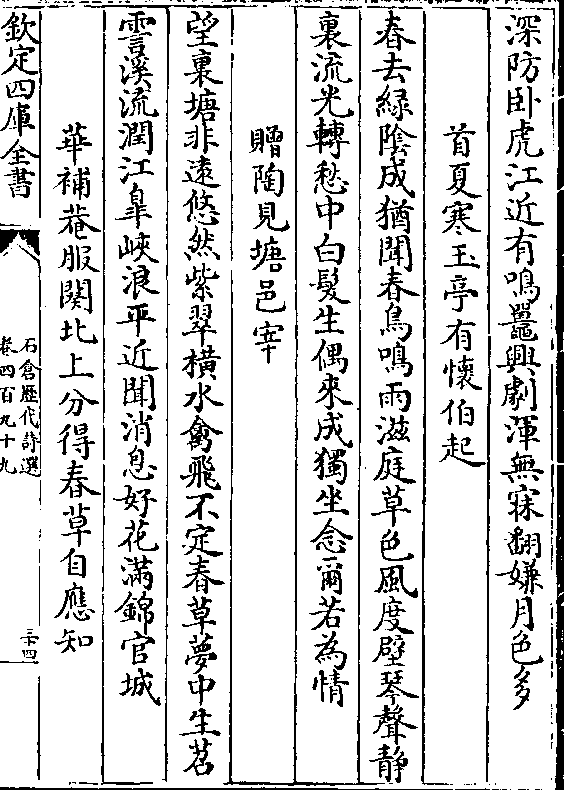 深防卧虎江近有鳴鼉興劇渾無寐翻嫌月色多
首夏寒玉亭有懷伯起
春去緑陰成猶聞春鳥鳴雨滋庭草色風度壁琴聲静
裏流光轉愁中白髮生偶來成獨坐念爾若為情
贈陶見塘邑宰
望裏塘非遠悠然紫翠橫水禽飛不定春草夢中生苕
霅溪流潤江臯峽浪平近聞消息好花滿錦官城
華補菴服闋北上分得春草自應知
欽定四庫全書
石倉歴代詩選
卷四百九十九
二十四